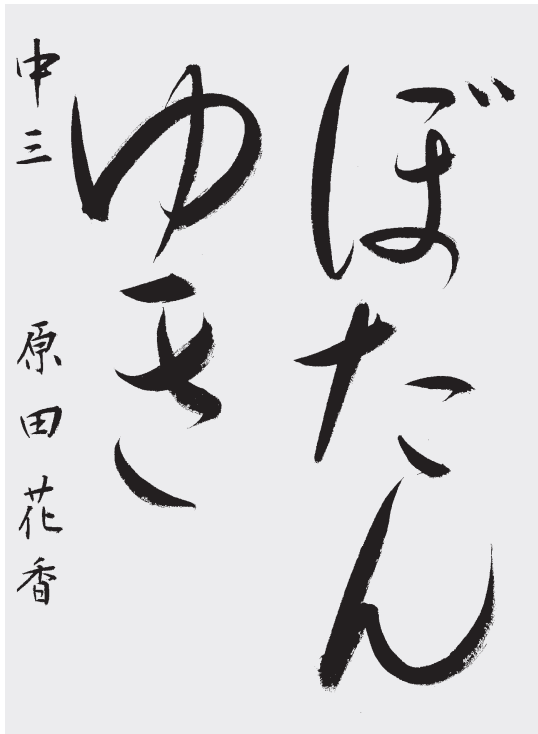 ぼたん
ゆき
中三 原田花香